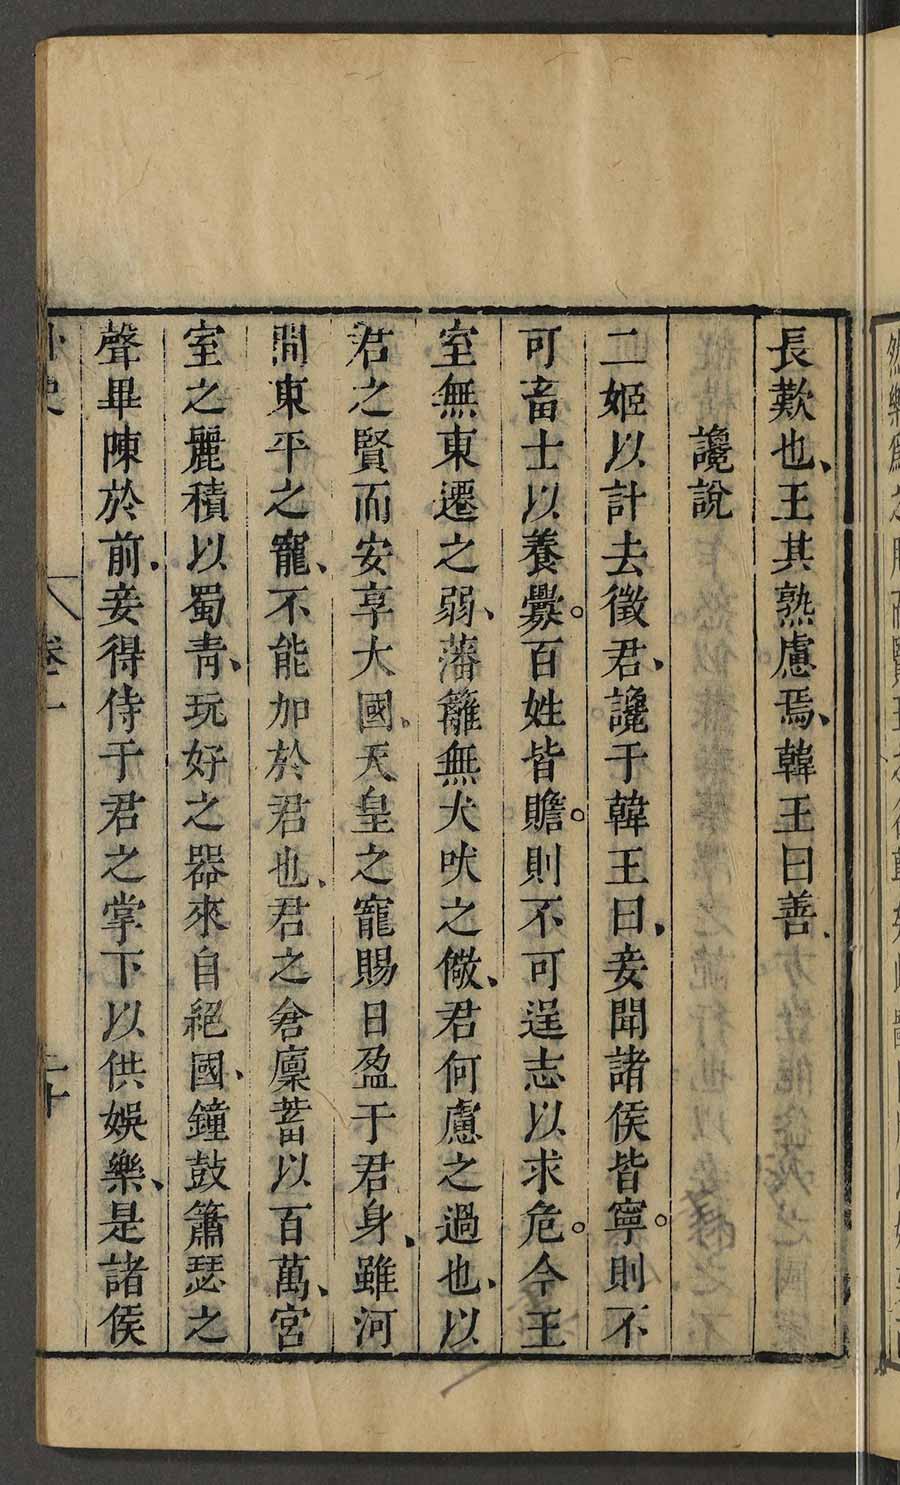 長歎也、王其熟慮焉、韓王曰善、
讒說
二姬以計去徵君、讒于韓王曰、妾聞諸侯皆寧。則不
可畜士以養釁。百姓皆贍。則不可逞志以求危。今王
室無東遷之弱、藩籬無犬吠之儆、君何慮之過也、以
君之賢而安享大國。天皇之寵賜日盈于君身、雖河
間東平之寵、不能加於君也、君之倉廩蓄以百萬、宮
室之麗積以蜀青、玩好之器來自絕國、鐘鼓簫瑟之
聲畢陳於前、妾得侍于君之掌下以供娛樂、是諸侯
外史 卷一 二十